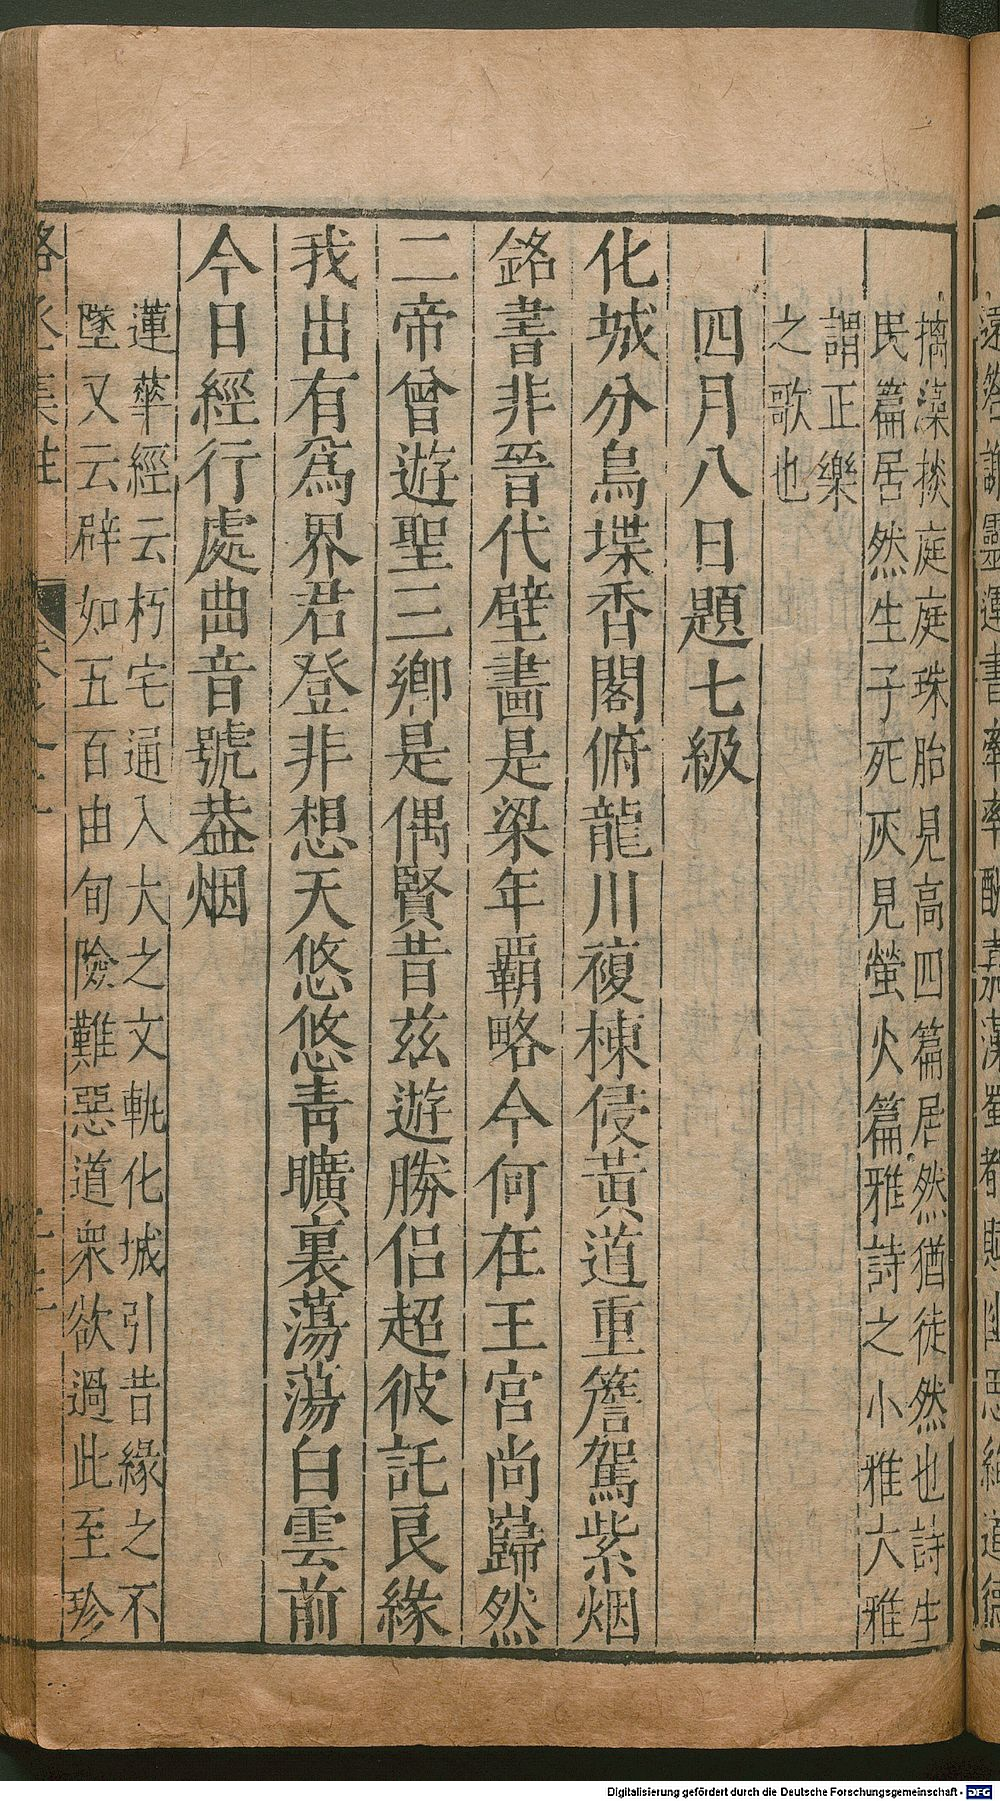 摛藻掞庭庭珠胎見高四篇居然猶徒然也詩生
民篇居然生子死灰見螢火篇雅詩之小雅大雅
謂正樂
之歌也
四月八日題七級
化城分鳥堞香閣俯龍川複棟侵黃道重簷駕紫烟
銘書非晉代壁畫是梁年覇略今何在王宮尚巋然
二帝曾遊聖三鄉是偶賢昔茲遊勝侶超彼託良緣
我出有爲界君登非想天悠悠青曠裏蕩蕩白雲前
今日經行處曲音號葢烟
蓮華經云朽宅通入大之文軌化城引昔緣之不
墜又云辟如五百由旬險難惡道衆欲過此至珍
Digitalisierung gefördert durch die Deutsche Forschungsgemeinschaft - DFG